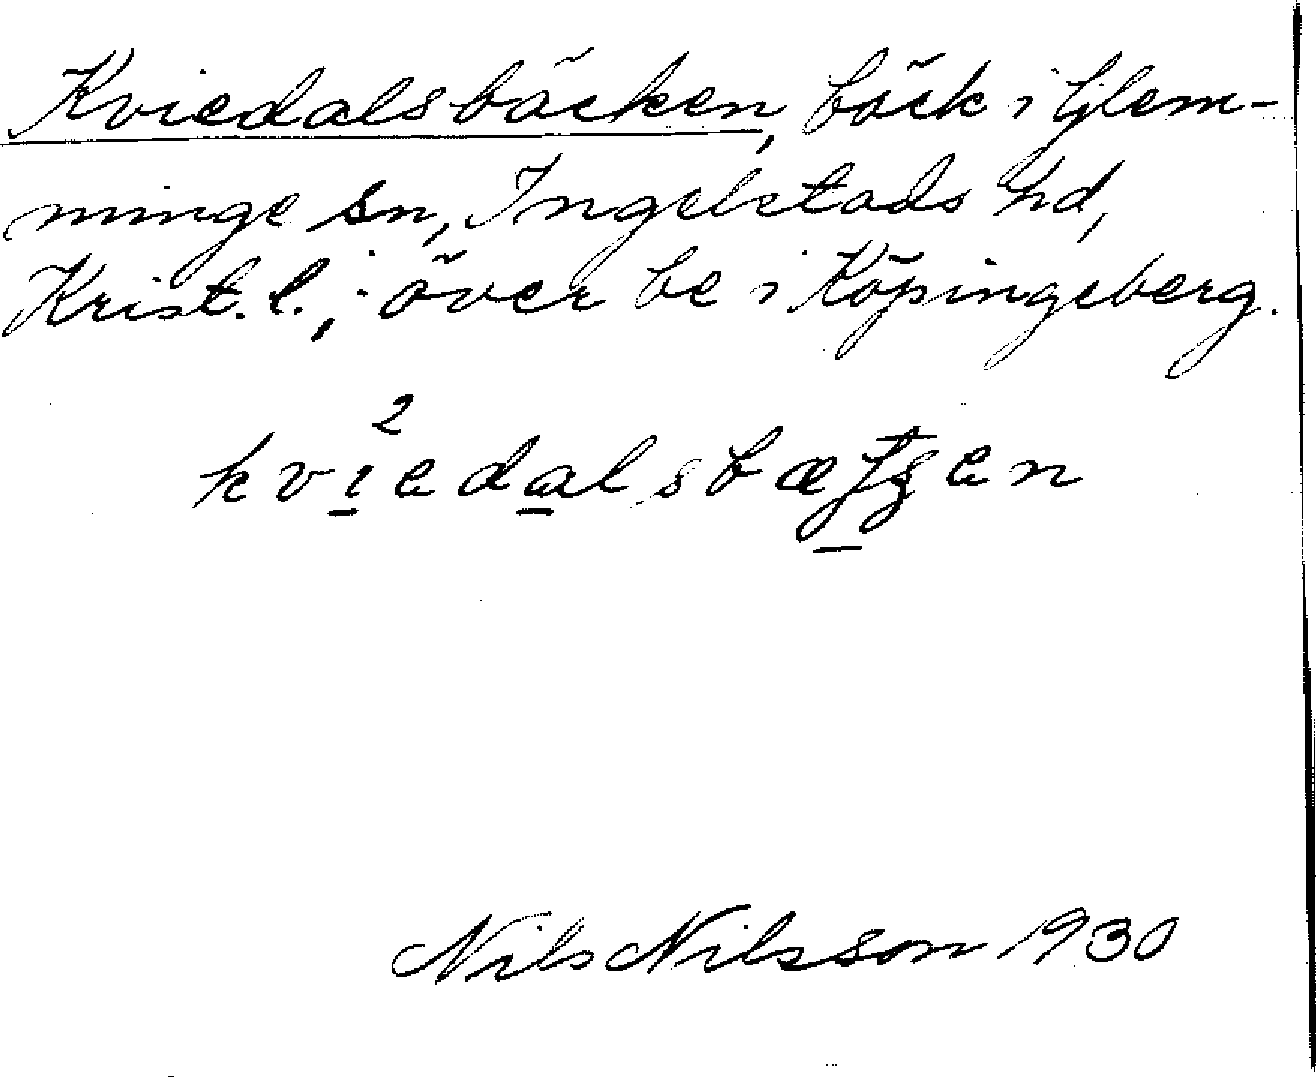 Kviedalsbäcken, bäck i Glem-
minge sn, Ingelstads hd,
Krist. l.; över be i Köpingeberg.
2
kviedalsbæʃʒen
Nils Nilsson 1930